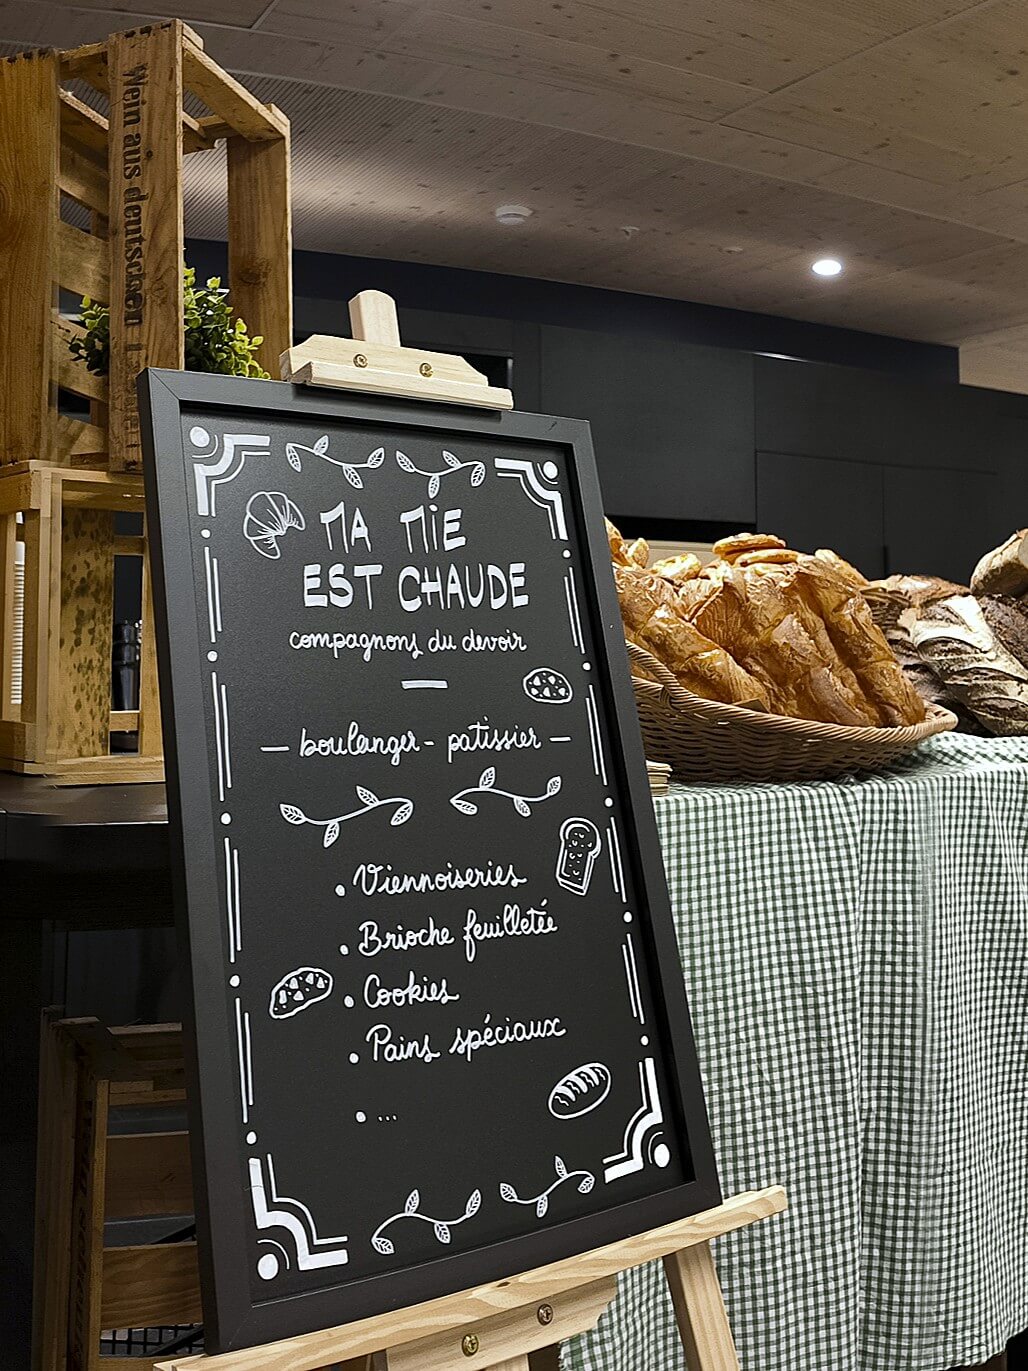 Wein aus deutschen
MA MIE
EST CHAUDE
compagnons du devoir
—
– boulanger - patissier –
• Viennoiseries
• Brioche feuilletée
• Cookies
• Pains spéciaux
• ...